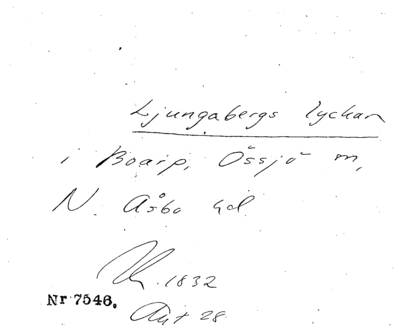 Ljungabergs lyckan
i Boarp, Össjö m,
N. Åsbo hd
1832
Nr 7546.
Akt 28